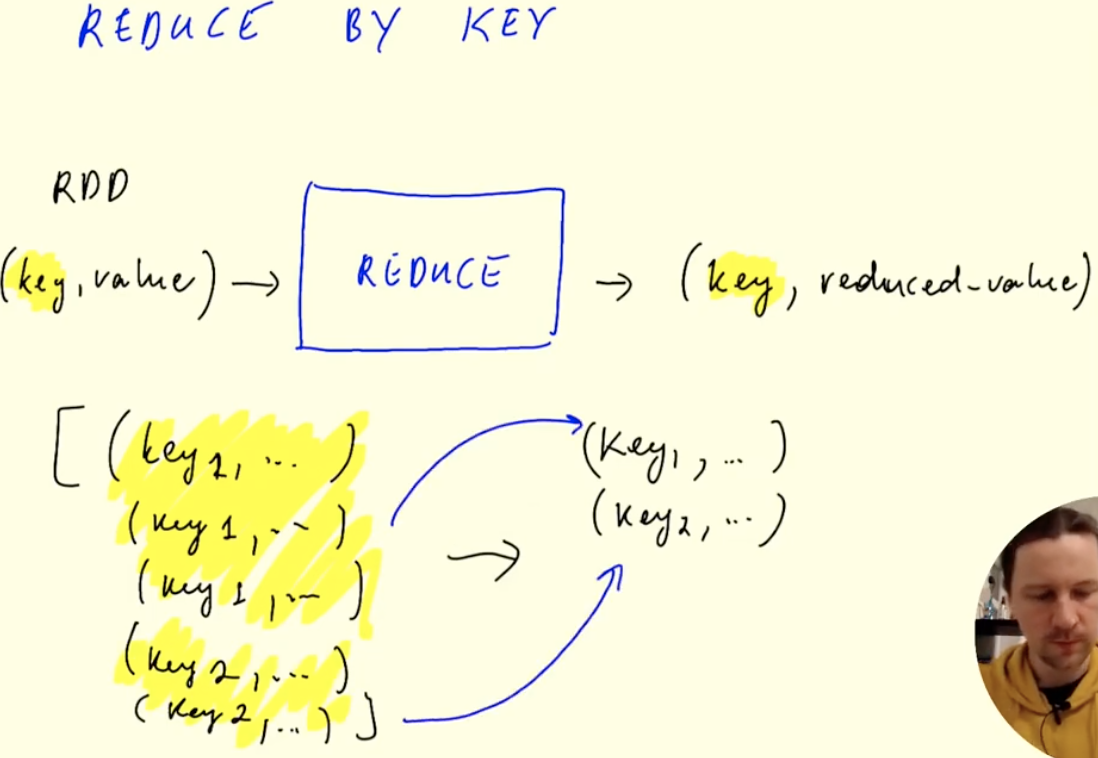 REDUCE BY KEY
RDD
(key, value) → REDUCE → (key, reduced-value)
[ (key 1, ... )
(key 1, ... )
(key 1, ... )
(key 2, ... )
(key 2, ... ) ]
→
(Key1, ... )
(Key2, ... )